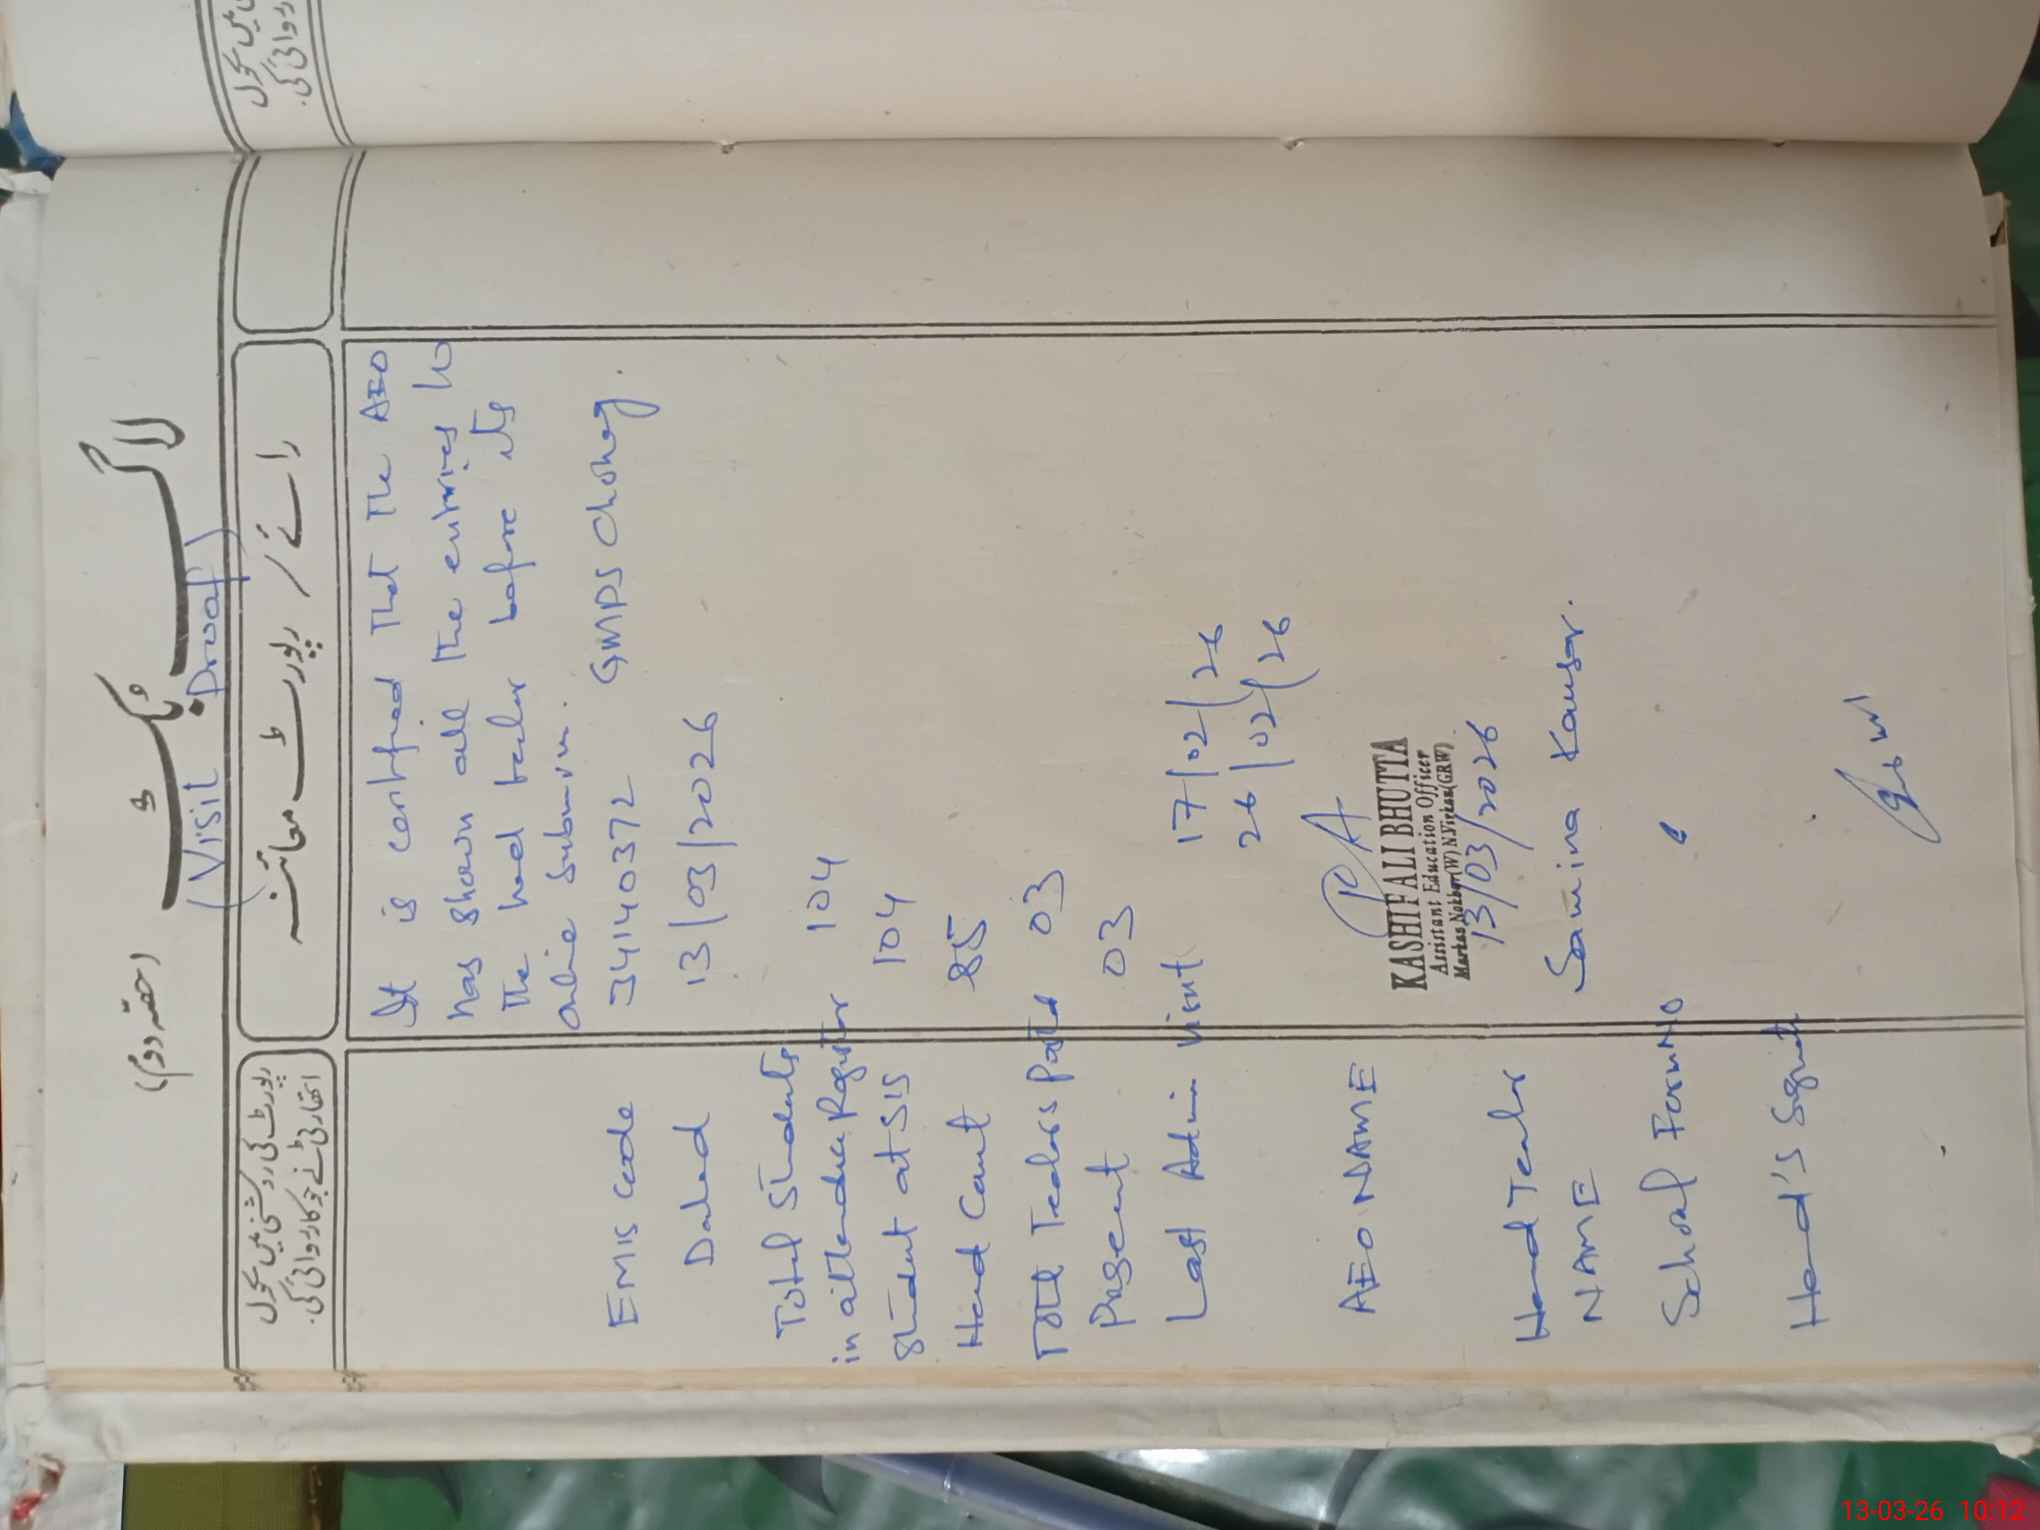 (حصہ دوم)
لاگ بک
(Visit Proof)
رپورٹ کی روشنی میں سکول
اتھارٹی نے جو کاروائی کی.
رائے / رپورٹ معائنہ
It is certified that the AEO
has shown all the entries to
the head before its
online
EMIS code 34140372 GMPS
Dated 13/03/2026
Total Students
in attendance Register 104
Student at SIS 104
Head Count 85
Total Teachers Posted 03
Present 03
Last Admin Visit 17/02/26
26/02/26
AEO NAME
KASHIF ALI BHUTTA
Assistant Education Officer
Markaz (W) N.Virkan(GRW)
13/03/2026
Head Teacher
NAME Samina Kousar.
School
Head's
میں سکول
روائی کی.
13-03-26 10:12